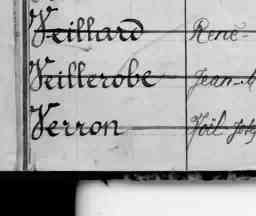 Veillard René-
Veillerobe Jean-
Verron